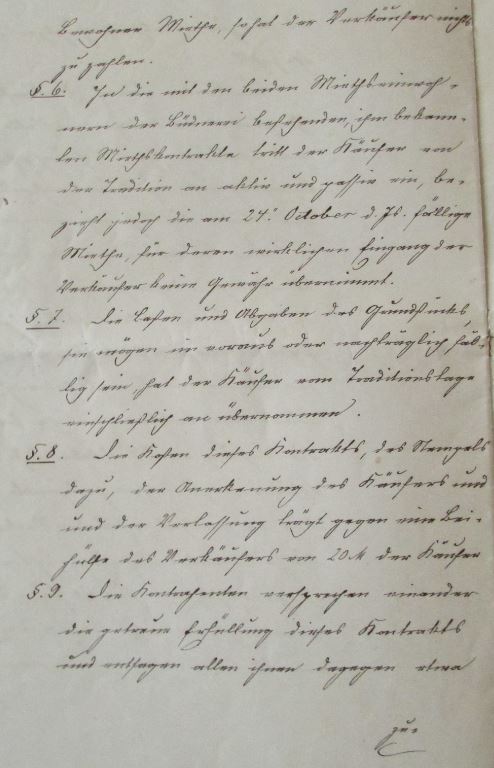 Bewohner Miethe, so hat der Verkäufer nichts
zu zahlen.
§. 6. In die mit den beiden Miethseinwoh-
nern der Büdnerei bestehenden, ihm bekann-
ten Miethskontrakte tritt der Käufer von
der Tradition an aktiv und passiv ein, be-
zieht jedoch die am 24t. October d. Js. fällige
Miethe, für deren wirklichen Eingang der
Verkäufer keine Gewähr übernimmt.
§. 7. Die Lasten und Abgaben des Grundstücks,
sie mögen im voraus oder nachträglich fäl-
lig sein, hat der Käufer vom Traditionstage
einschließlich an übernommen.
§. 8. Die Kosten dieses Kontrakts, des Stempels
dazu, der Anerkennung des Käufers und
und der Verlassung trägt gegen eine Bei-
hülfe des Verkäufers von 20 M der Käufer
§. 9. Die Kontrahenten versprechen einander
die getreue Erfüllung dieses Kontrakts
und entsagen allen ihnen dagegen etwa
zu-